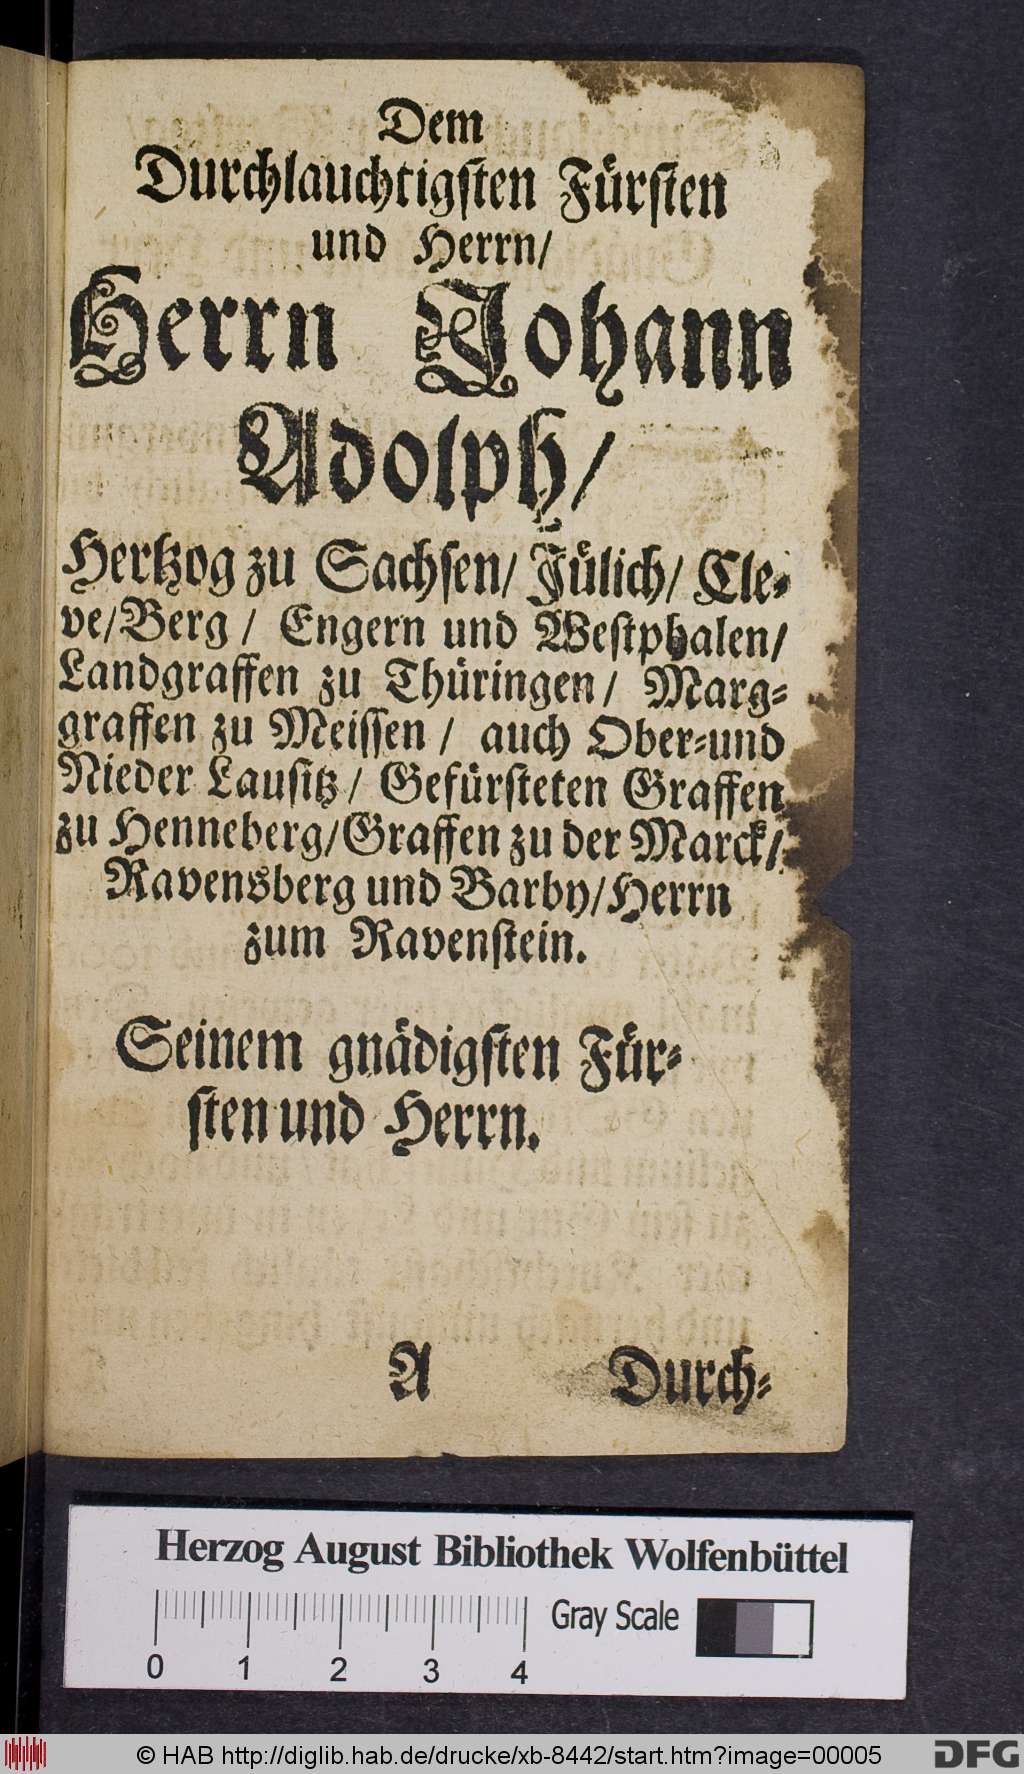 Dem
Durchlauchtigsten Fürsten
und Herrn/
Herrn Johann
Adolph/
Hertzog zu Sachsen/ Jülich/ Cle-
ve/Berg/ Engern und Westphalen/
Landgraffen zu Thüringen/ Marg-
graffen zu Meissen/ auch Ober-und
Nieder Lausitz/ Gefürsteten Graffen
zu Henneberg/Graffen zu der Marck/
Ravensberg und Barby/Herrn
zum Ravenstein.
Seinem gnädigsten Für-
sten und Herrn.
A Durch-
Herzog August Bibliothek Wolfenbüttel
Gray Scale
0 1 2 3 4
© HAB http://diglib.hab.de/drucke/xb-8442/start.htm?image=00005
DFG